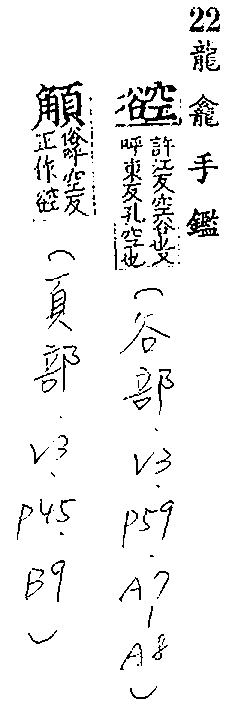 22 龍龕手鑑
谾
許江反空谷也又
呼東反孔空也
(谷部.V3.P59.A7-A8)
俗呼空反
正作谾
(頁部.V3.P45.B9)